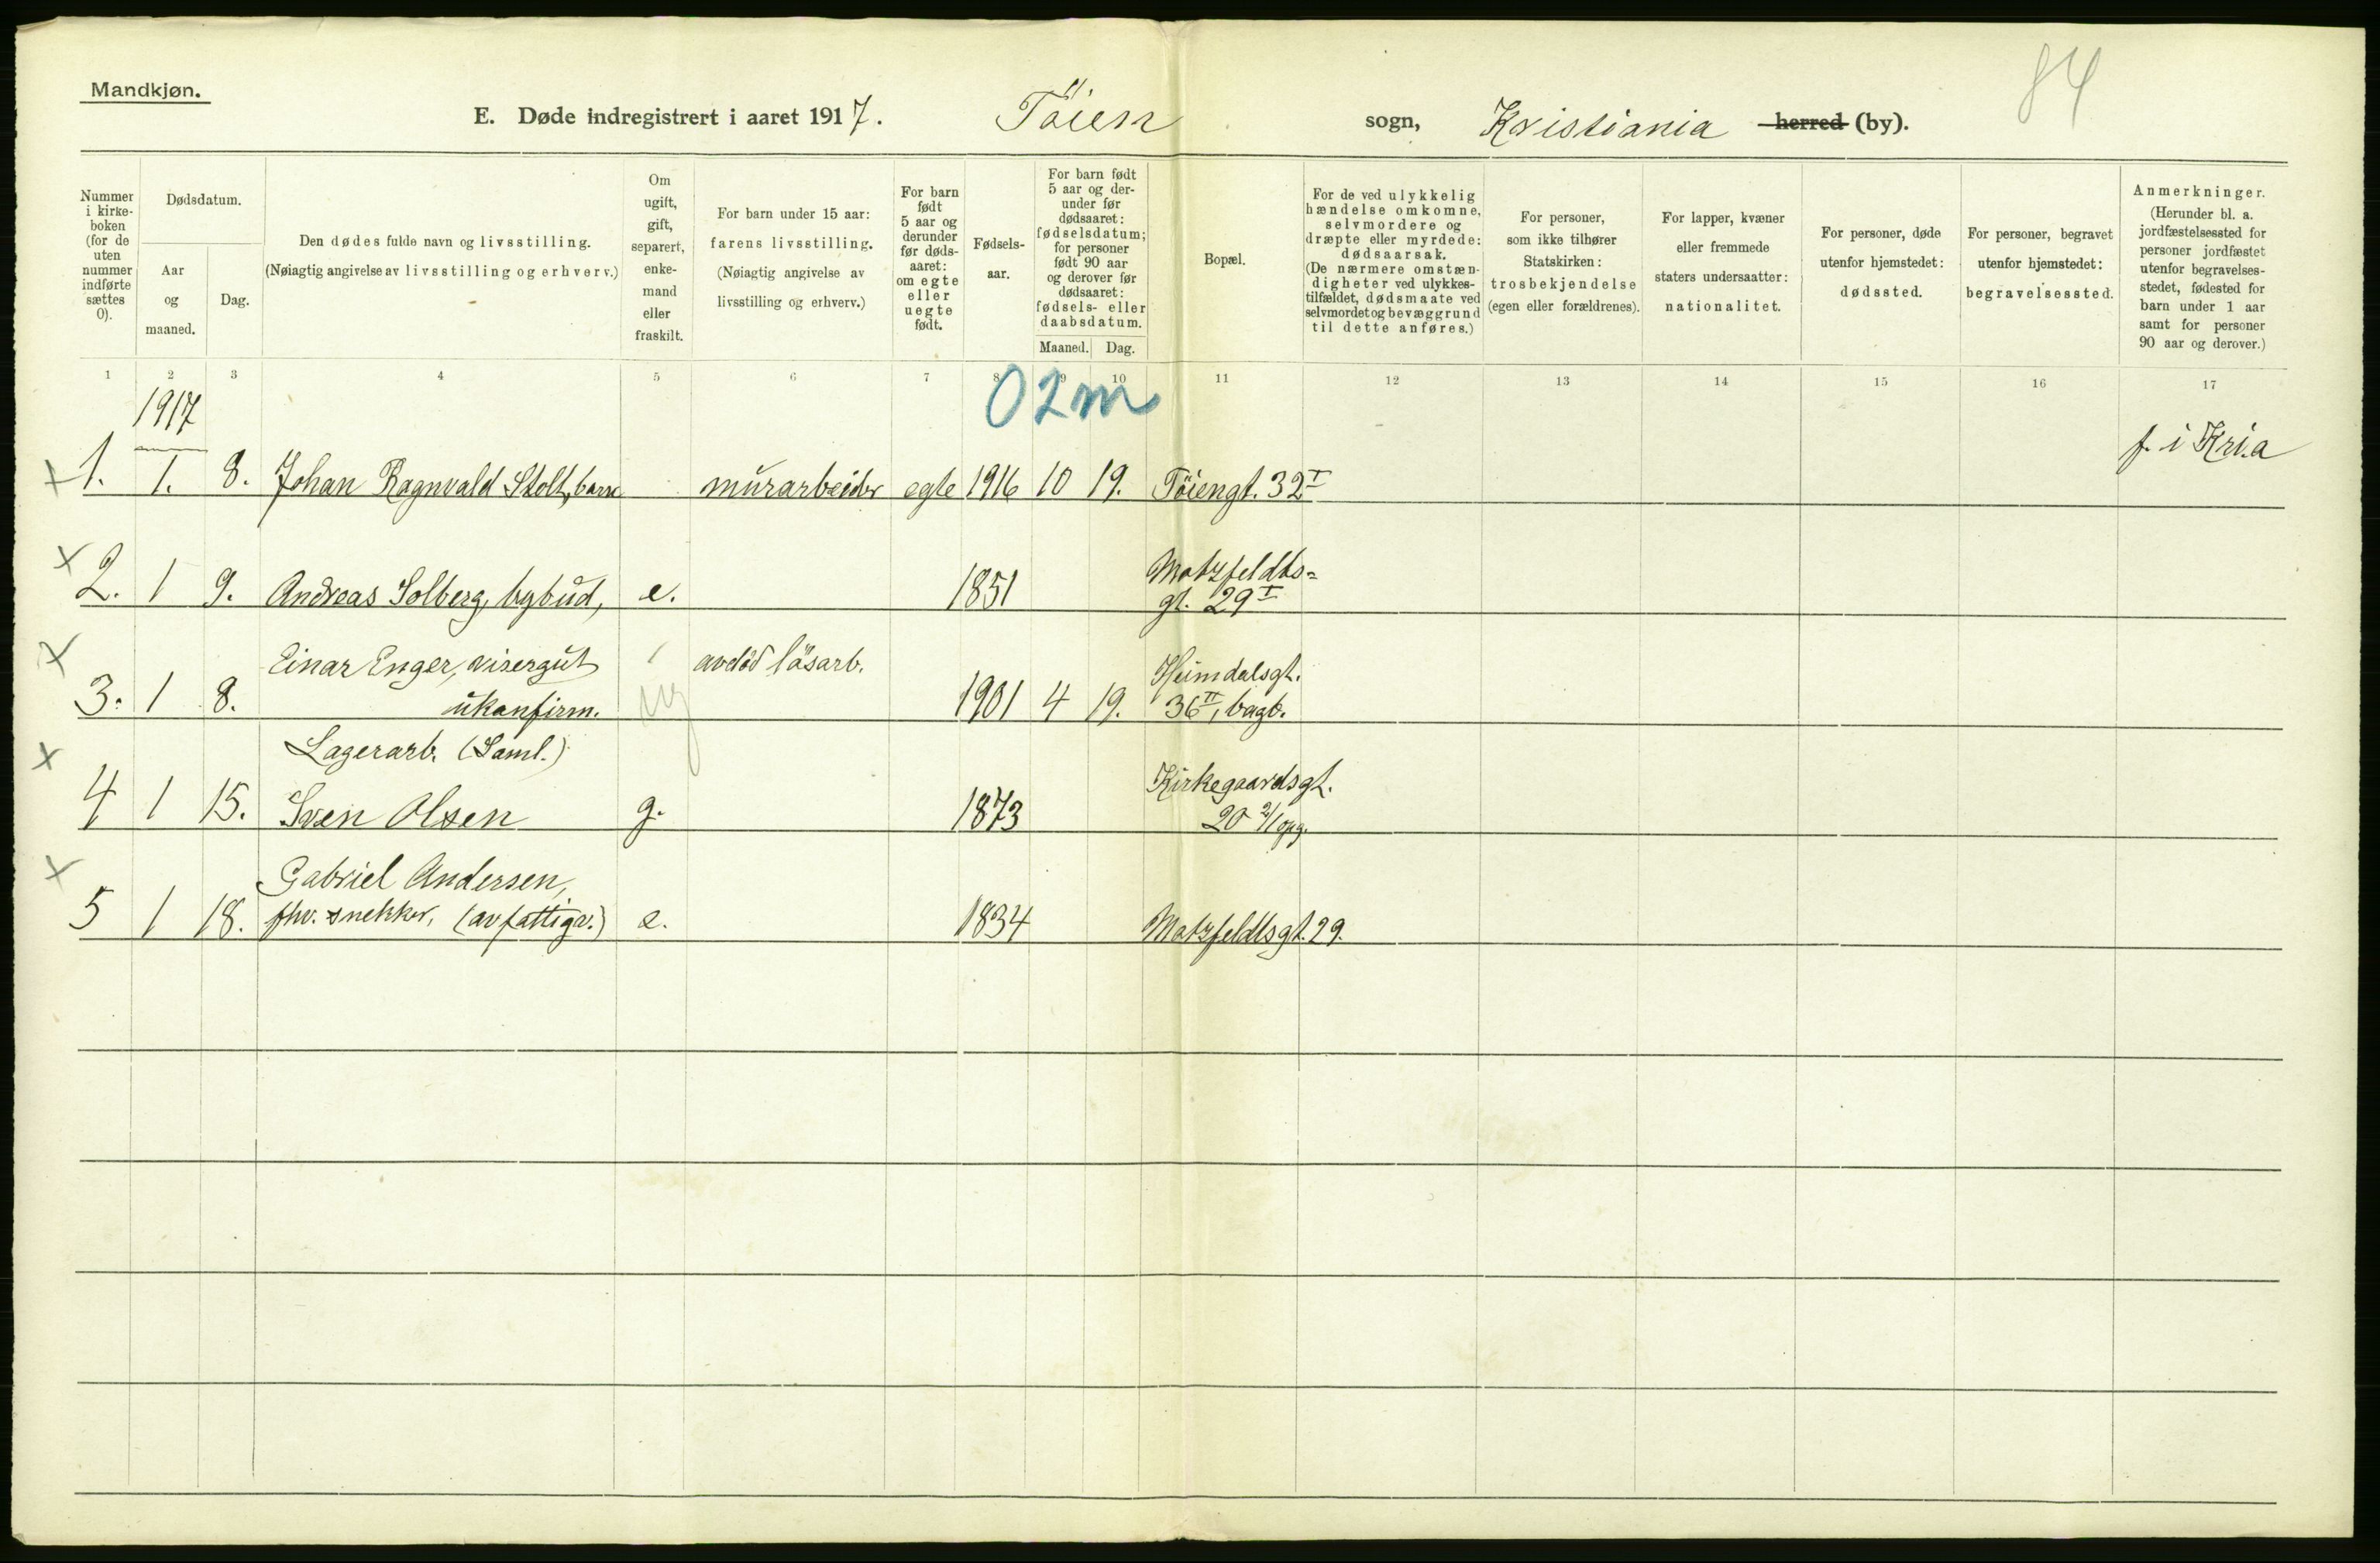 84
Mandkjøn.
E. Døde indregistrert i aaret 1917. Töien sogn, Kristiania herred (by).
Nummer i kirke-boken (for de uten nummer indførte sættes 0).
Dødsdatum.
Aar og maaned.
Dag.
Den dødes fulde navn og livsstilling.
(Nøiagtig angivelse av livsstilling og erhverv.)
Om ugift, gift, separert, enke-mand eller fraskilt.
For barn under 15 aar:
farens livsstilling.
(Nøiagtig angivelse av
livsstilling og erhverv.)
For barn født 5 aar og derunder før døds-aaret: om egte eller uegte født.
Fødsels-aar.
For barn født 5 aar og der-under før dødsaaret: fødselsdatum; for personer født 90 aar og derover før dødsaaret: fødsels- eller daabsdatum.
Maaned. Dag.
Bopæl.
For de ved ulykkelig hændelse omkomne, selvmordere og dræpte eller myrdede: dødsaarsak.
(De nærmere omstæn-digheter ved ulykkes-tilfældet, dødsmaate ved selvmordet og bevæggrund til dette anføres.)
For personer, som ikke tilhører Statskirken: trosbekjendelse (egen eller forældrenes).
For lapper, kvæner eller fremmede staters undersaatter: nationalitet.
For personer, døde utenfor hjemstedet: dødssted.
For personer, begravet utenfor hjemstedet: begravelsessted.
Anmerkninger.
(Herunder bl. a. jordfæstelsessted for personer jordfæstet utenfor begravelses-stedet, fødested for barn under 1 aar samt for personer 90 aar og derover.)
1 2 3 4 5 6 7 8 9 10 11 12 13 14 15 16 17
1917
02m
f. i Kria
x 1. 1. 8. Johan Ragnvald Stolt, barn murarbeider egte 1916 10 19. Töiengt. 32 I
x Motzfeldts=
2. 1 9. Andreas Solberg, bybud, e. 1851 gt. 29 I
x Einar Enger, visergut avdöd lösarb. Heimdalsgt.
3. 1 8. ukonfirm. ug 1901 4 19. 36 II, bagb.
x Lagerarb. (Saml.) Kirkegaardsgt.
4 1 15. Sven Olsen g. 1873 20 2/1 opg.
x Gabriel Andersen,
5 1 18. fhv. snekker, (av fattigv.) e. 1834 Motzfeldtsgt. 29.